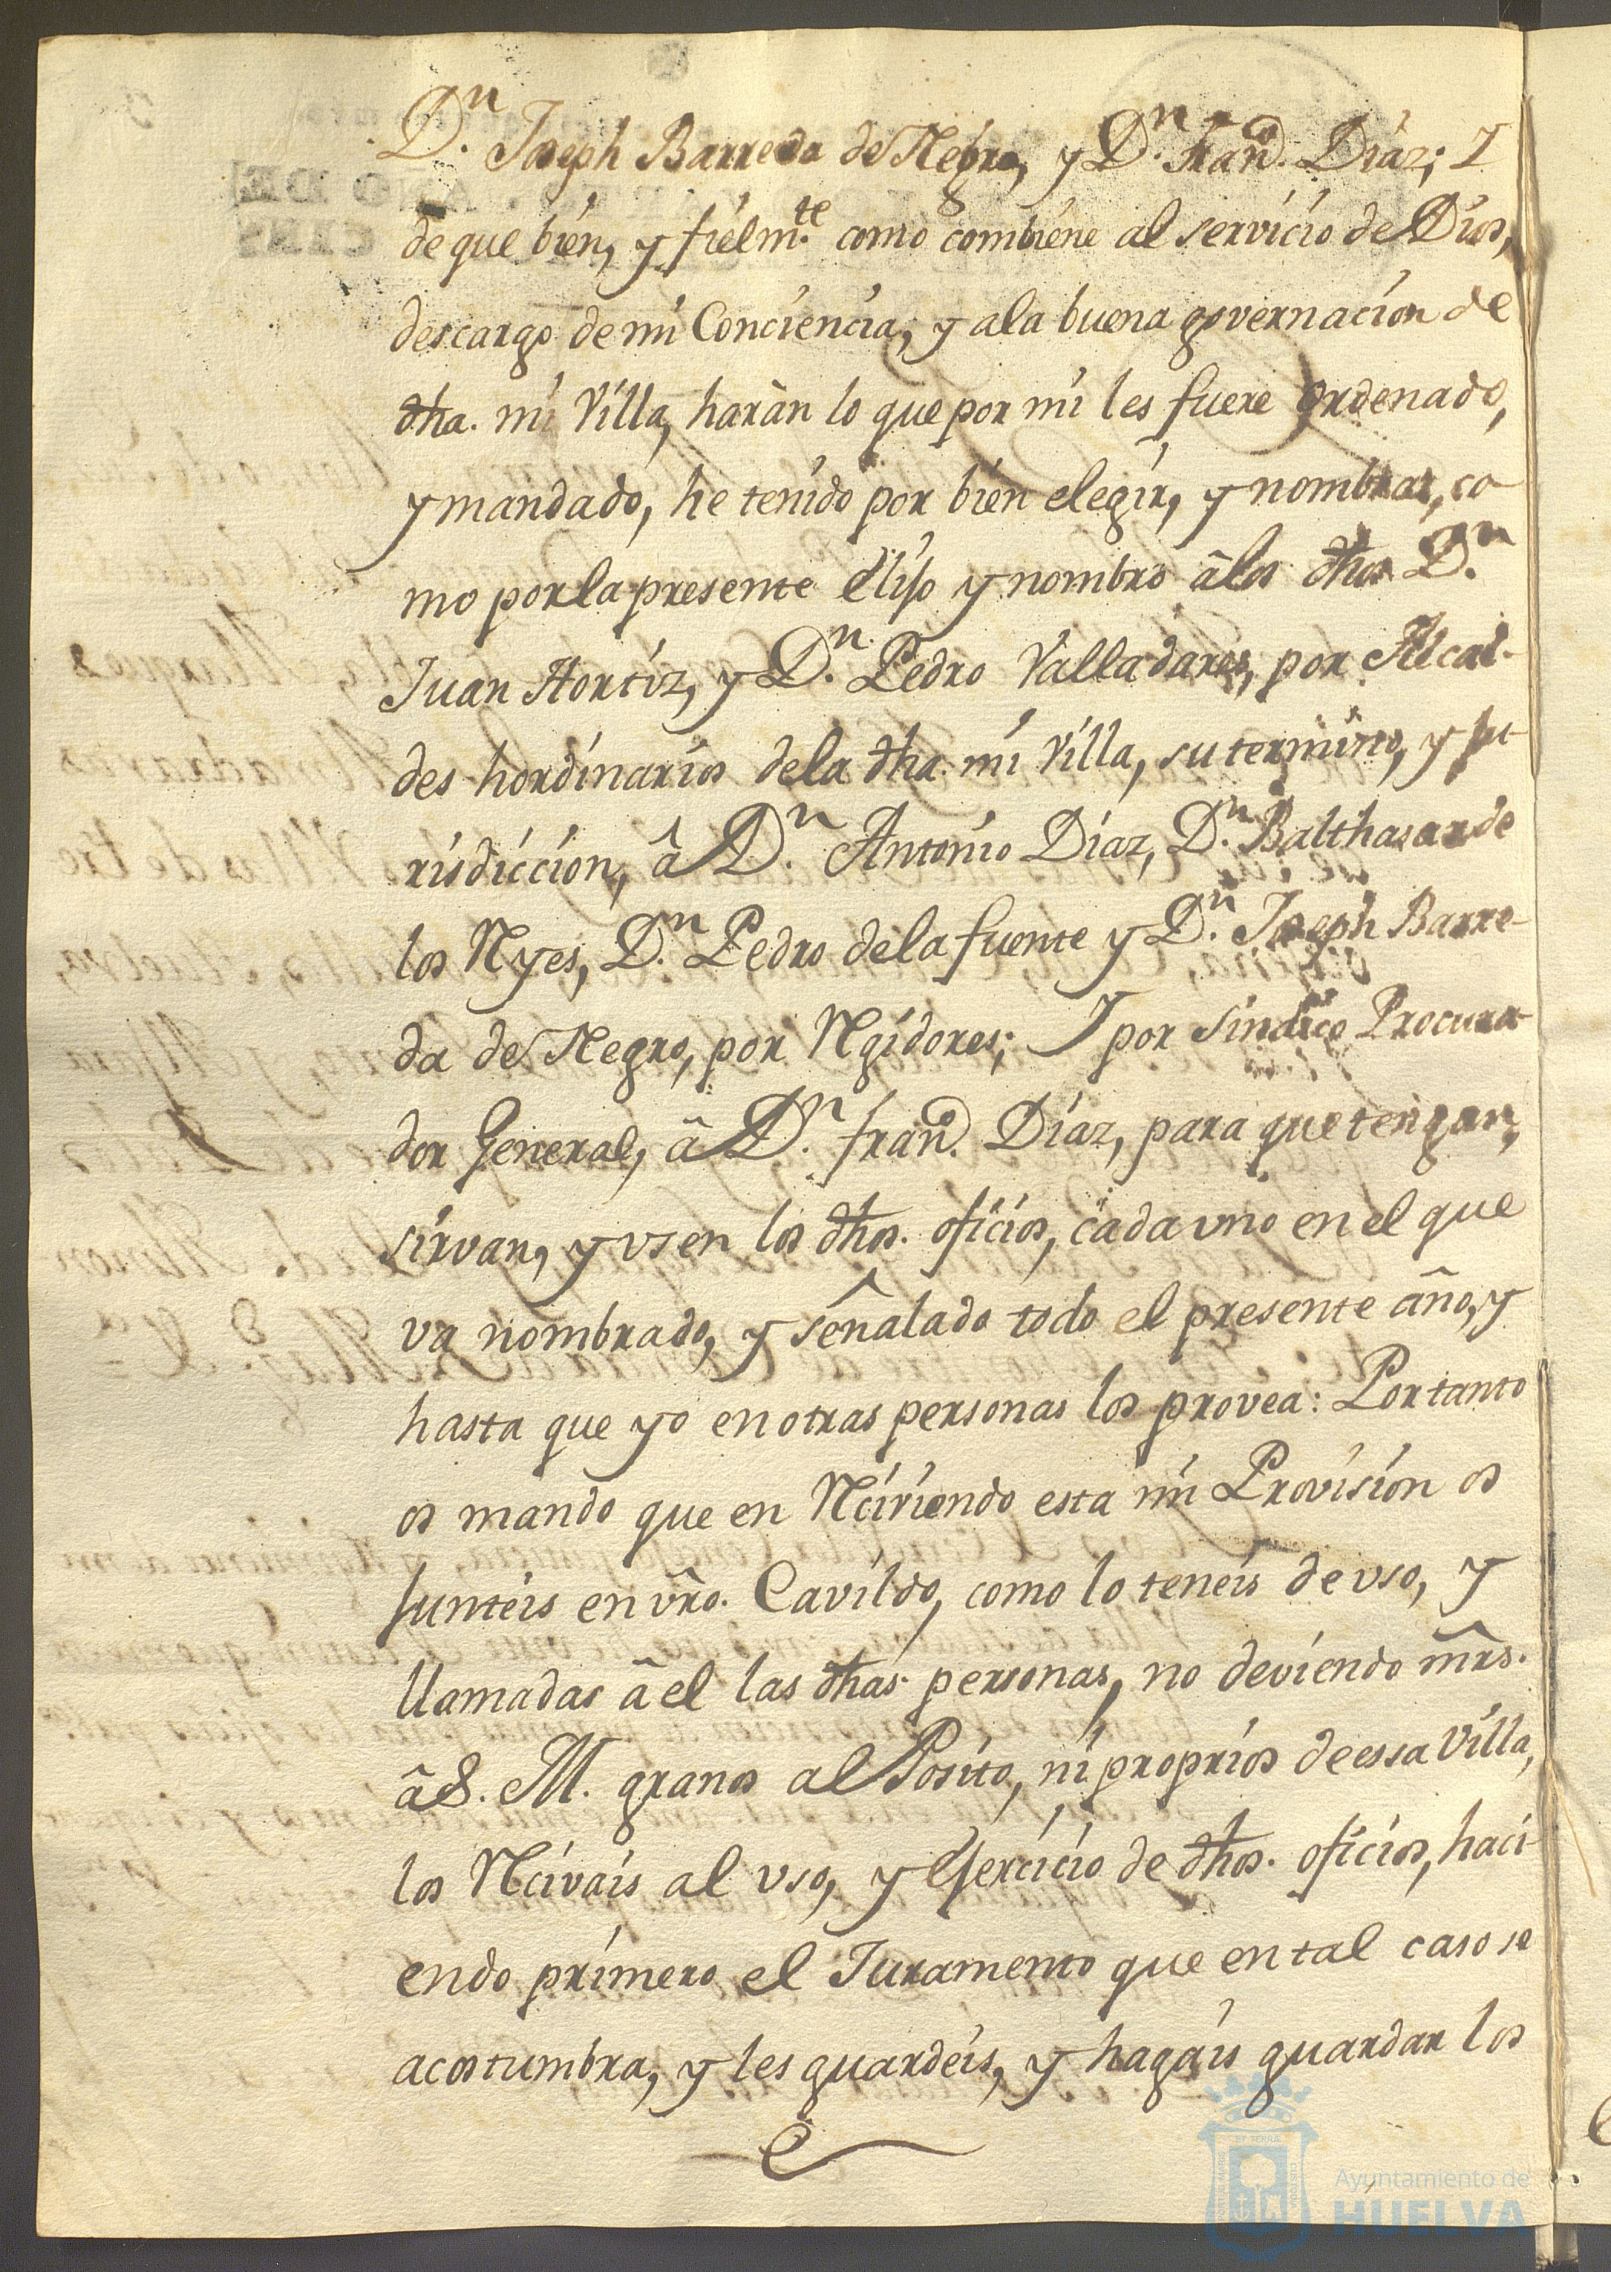 Dn. Joseph Barreda de Negro, y Dn. Frand. Díaz; I
de que bien, y fielmte. como combiene al servicio de Dios,
descargo de mi Conciencia, y ala buena governacion de
dha. mi Villa, haràn lo que por mi les fuere ordenado,
y mandado, he tenido por bien elegir, y nombrar, co
mo por la presente elijo y nombro â los dhos Dn.
Juan Hortiz, y Dn. Pedro Valladares, por Alcal-
des hordinarios dela dha. mi Villa, su termino, y ju
risdiccion, â Dn. Antonio Diaz, Dn. Balthasar de
los Reyes, Dn. Pedro dela fuente y Dn. Joseph Barre-
da de Negro, por Regidores; I por Sindico Procura
dor General, â Dn. frand. Díaz, para que tengan,
sirvan, y vsen los dhos. oficios, cada vno en el que
va nombrado, y señalado todo el presente año, y
hasta que yo en otras personas los provea: Por tanto
os mando que en Reciviendo esta mi Provision os
Junteis en vro. Cavildo, como lo teneis de vso, y
llamadas â el las dhas. personas, no deviendo mrs.
â S. M. granos al Posito, ni proprios de essa Villa,
los Recivais al vso, y ejercicio de dhos. oficios, haci
endo primero el Juramento que en tal caso se
acostumbra, y les guardeis, y hagais guardar los
Ayuntamiento de
HUELVA